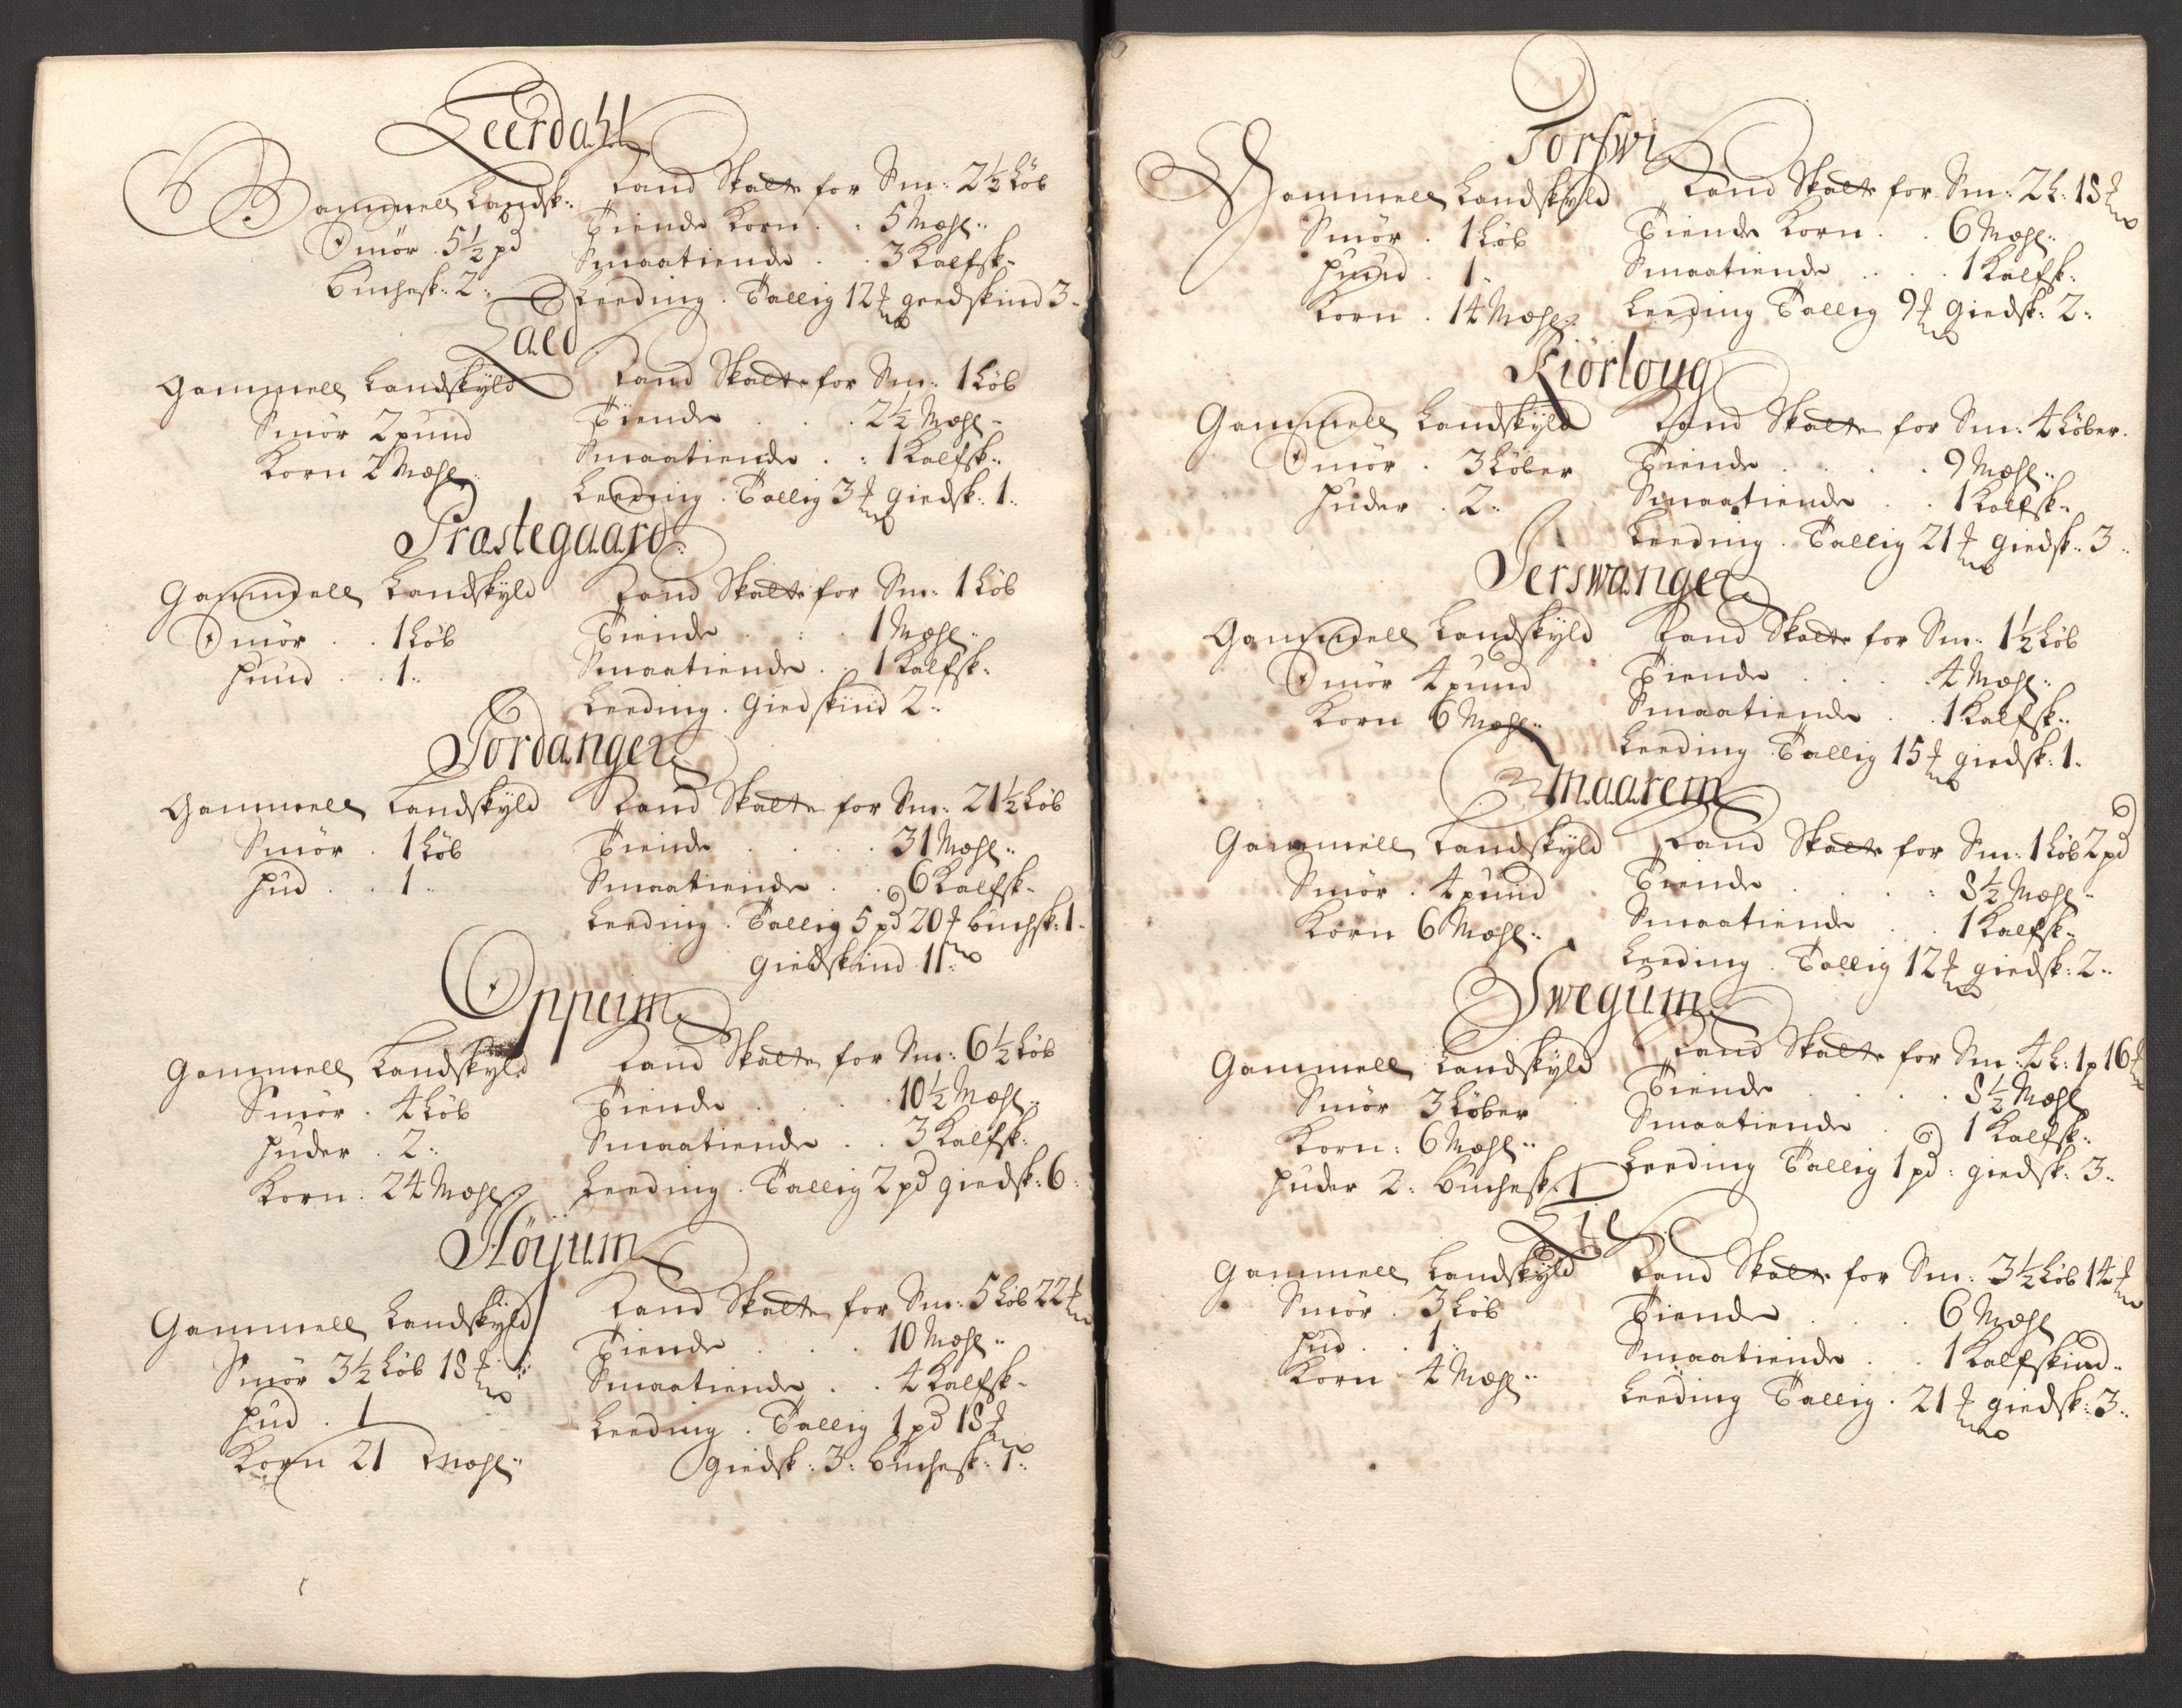 Leerdahl
Gammell Landsk:
Smör . 5½ pd
Buchesk: 2:
Land Skatte for Sm: 2½ Löb
Tiende Korn . . 5 Mæhl:
Smaatiende . . 3 Kalfsk:
Leeding . Tallig 12 ℔ geedskind 3:
Laed
Gammell Landskyld
Smör 2 pund
Korn 2 Mæhl:
Land Skatte for Sm: 1 Löb
Tiende . . . 2½ Mæhl:
Smaatiende . : 1 Kalfsk:
Leeding . Tallig 3 ℔ giedsk: 1:
Præstegaard
Gammell Landskyld
Smör . . 1 Löb
Huud . . 1:
Land Skatte for Sm: 1 Löb
Tiende . : . 1 Mæhl:
Smaatiende . . 1 Kalfsk:
Leeding . Giedskind 2:
Jordanger
Gammell Landskyld
Smör . 1 Löb
Hud . . 1:
Land Skatte for Sm: 21½ Löb
Tiende . . . . 31 Mæhl:
Smaatiende . . 6 Kalfsk:
Leeding . Tallig 5 pd 20 ℔ Buchsk: 1:
Giedskind 11:
Oppeim
Gammell Landskyld
Smör . 4 Löb
Huder . 2:
Korn . 24 Mæhl:
Land Skatte for Sm: 6½ Löb
Tiende . . . . 10½ Mæhl:
Smaatiende . . 3 Kalfsk:
Leeding . Tallig 2 pd giedsk: 6:
Höijum
Gammell Landskyld
Smör 3½ Löb 18 ℔:
Hud . 1
Korn 21 Mæhl:
Land Skatte for Sm: 5 Löb 22 ℔
Tiende . . . 10 Mæhl:
Smaatiende . . 4 Kalfsk:
Leeding . Tallig 1 pd 18 ℔
Giedsk: 3: Buchesk: 1:
Torswi
Gammell Landskyld
Smör . 1 Löb
Huud . 1:
Korn . 14 Mæhl:
Land Skatte for Sm: 2 L: 18 ℔
Tiende Korn . . 6 Mæhl:
Smaatiende . . . 1 Kalfsk:
Leeding Tallig 9 ℔ giedsk: 2:
Kiörloug
Gammell Landskyld
Smör . 3 Löber
Huder . 2:
Land Skatte for Sm: 4 Löber.
Tiende . . . . 9 Mæhl:
Smaatiende . . 1 Kalfsk:
Leeding . Tallig 21 ℔ giedsk: 3:
Ierswanger
Gammell Landskyld
Smör 4 pund
Korn 6 Mæhl:
Land Skatte for Sm: 1½ Löb
Tiende . . . . 4 Mæhl:
Smaatiende . . 1 Kalfsk:
Leeding Tallig 15 ℔ giedsk: 1:
Maarem
Gammell Landskyld
Smör . 4 pund
Korn 6 Mæhl:
Land Skatte for Sm: 1 Löb 2 pd
Tiende . . . . 8½ Mæhl:
Smaatiende . . 1 Kalfsk:
Leeding . Tallig 12 ℔ giedsk: 2:
Swegum
Gammell Landskyld
Smör 3 Löber
Korn: 6 Mæhl:
Huder 2: Buchesk: 1
Land Skatte for Sm: 4 L: 1 p 16 ℔
Tiende . . . . 8½ Mæhl
Smaatiende . 1 Kalfsk:
Leeding Tallig 1 pd: giedsk: 3:
Gammell Landskyld
Smör . 3 Löb
Hud . . 1:
Korn 4 Mæhl:
Land Skatte for Sm: 3½ Löb 14 ℔
Tiende . . . 6 Mæhl
Smaatiende . . 1 Kalfskind:
Leeding Tallig . 21 ℔ giedsk: 3: